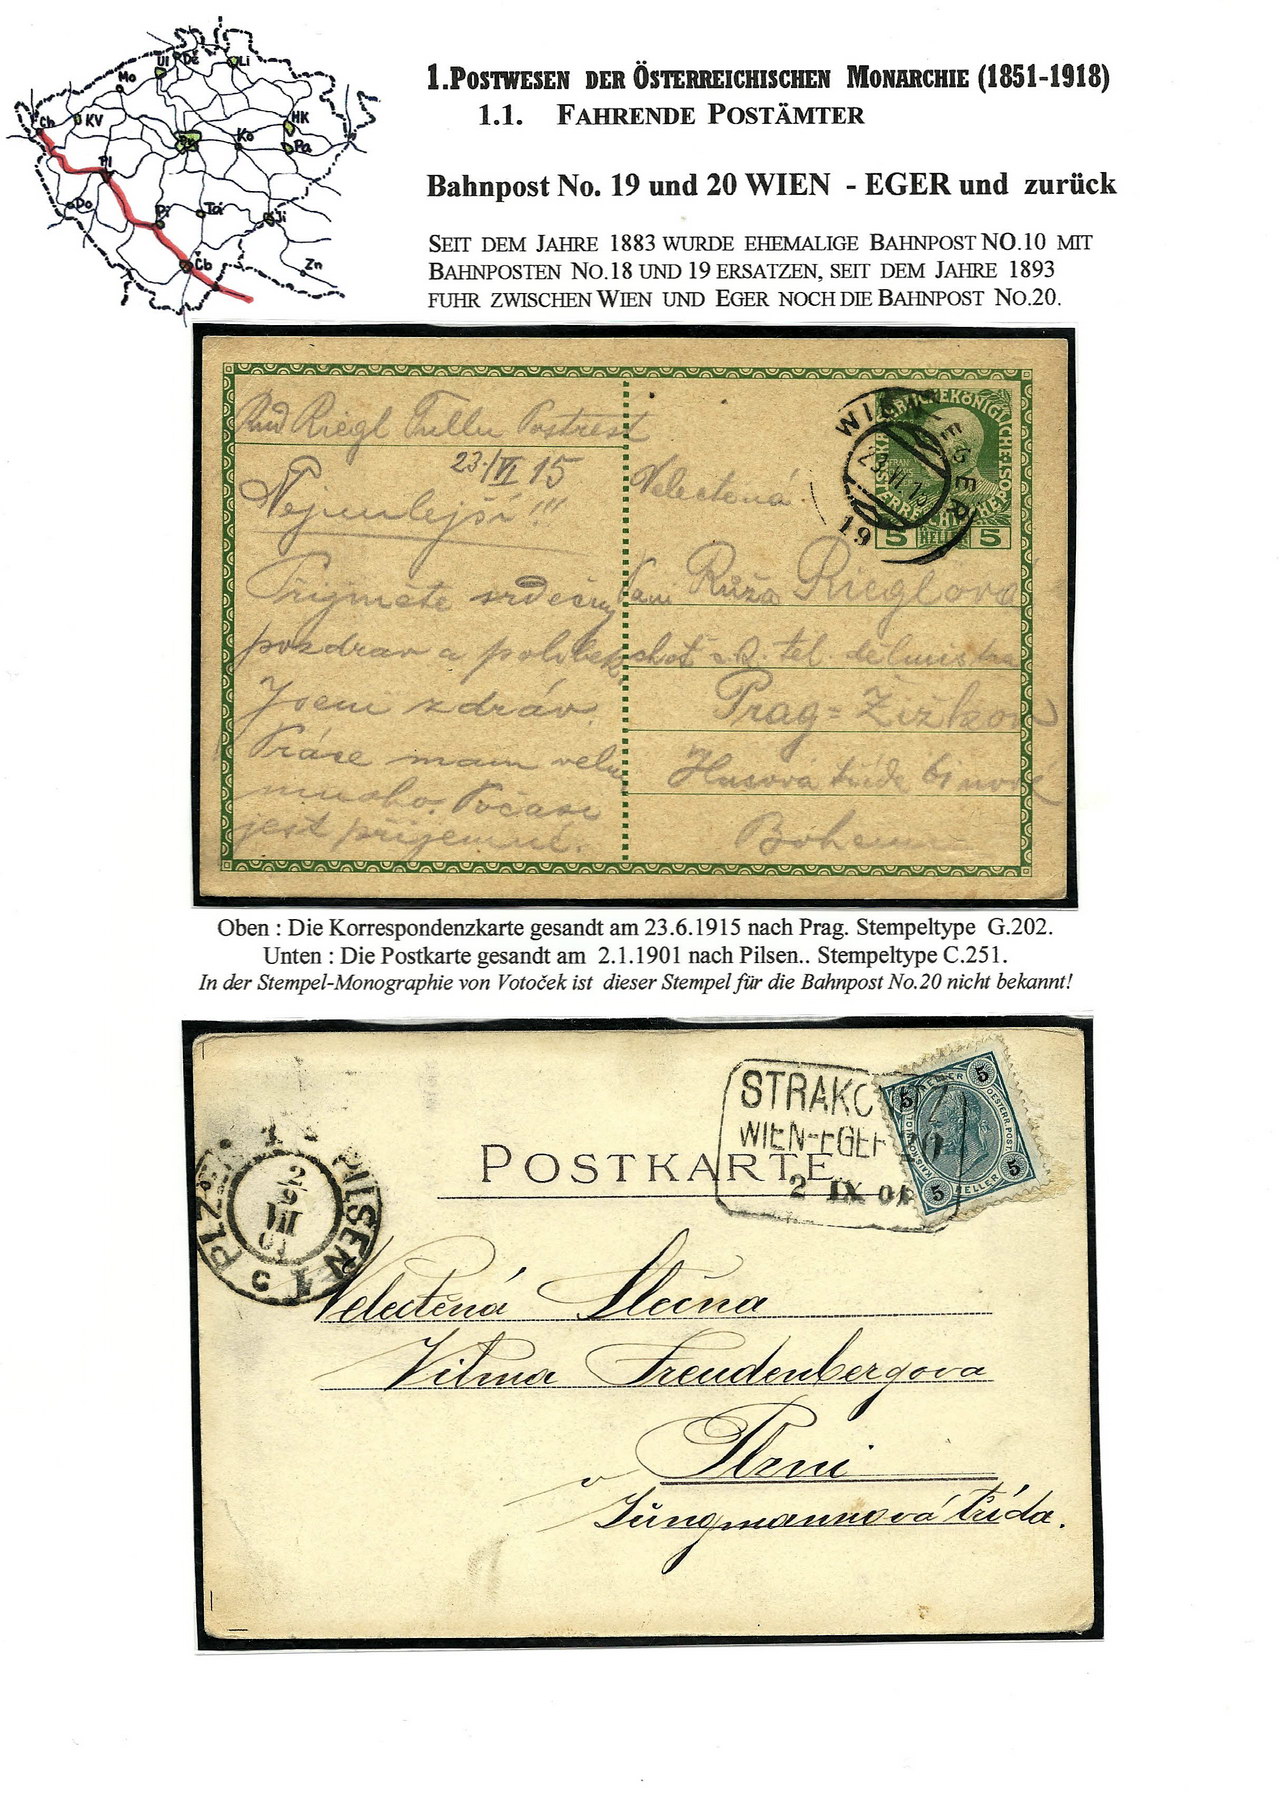 Ul
Dě
Li
Mo
Ch
KV
HK
Ko
Pa
Pl
Do
Pi
Tá
Ji
Čb
Zn
1.POSTWESEN DER ÖSTERREICHISCHEN MONARCHIE (1851-1918)
1.1. FAHRENDE POSTÄMTER
Bahnpost No. 19 und 20 WIEN - EGER und zurück
SEIT DEM JAHRE 1883 WURDE EHEMALIGE BAHNPOST NO.10 MIT
BAHNPOSTEN NO.18 UND 19 ERSATZEN, SEIT DEM JAHRE 1893
FUHR ZWISCHEN WIEN UND EGER NOCH DIE BAHNPOST NO.20.
Riegl Tulln Postrest
23./VI 15
Nejmilejší!!!
Přijměte srdečný
pozdrav a polibek
Jsem zdráv.
Práce mam velmi
mnoho. Počasí
jest příjemné.
WIEN EGER
23.VI.15
19
5 HELLER 5
Velectená
Paní Růža Rieglová
choť
Prag-Žižkov
Husova třída 61 nové
Bohemia
Oben : Die Korrespondenzkarte gesandt am 23.6.1915 nach Prag. Stempeltype G.202.
Unten : Die Postkarte gesandt am 2.1.1901 nach Pilsen.. Stempeltype C.251.
In der Stempel-Monographie von Votoček ist dieser Stempel für die Bahnpost No.20 nicht bekannt!
STRAKO
WIEN-EGER 20
2 IX 01
5 HELLER 5
5 HELLER 5
POSTKARTE
PLZEŇ 1 PILSEN 1
Velectěná Slečna
Vilma Freudenbergova
v Plzni
Jungmannová třída.